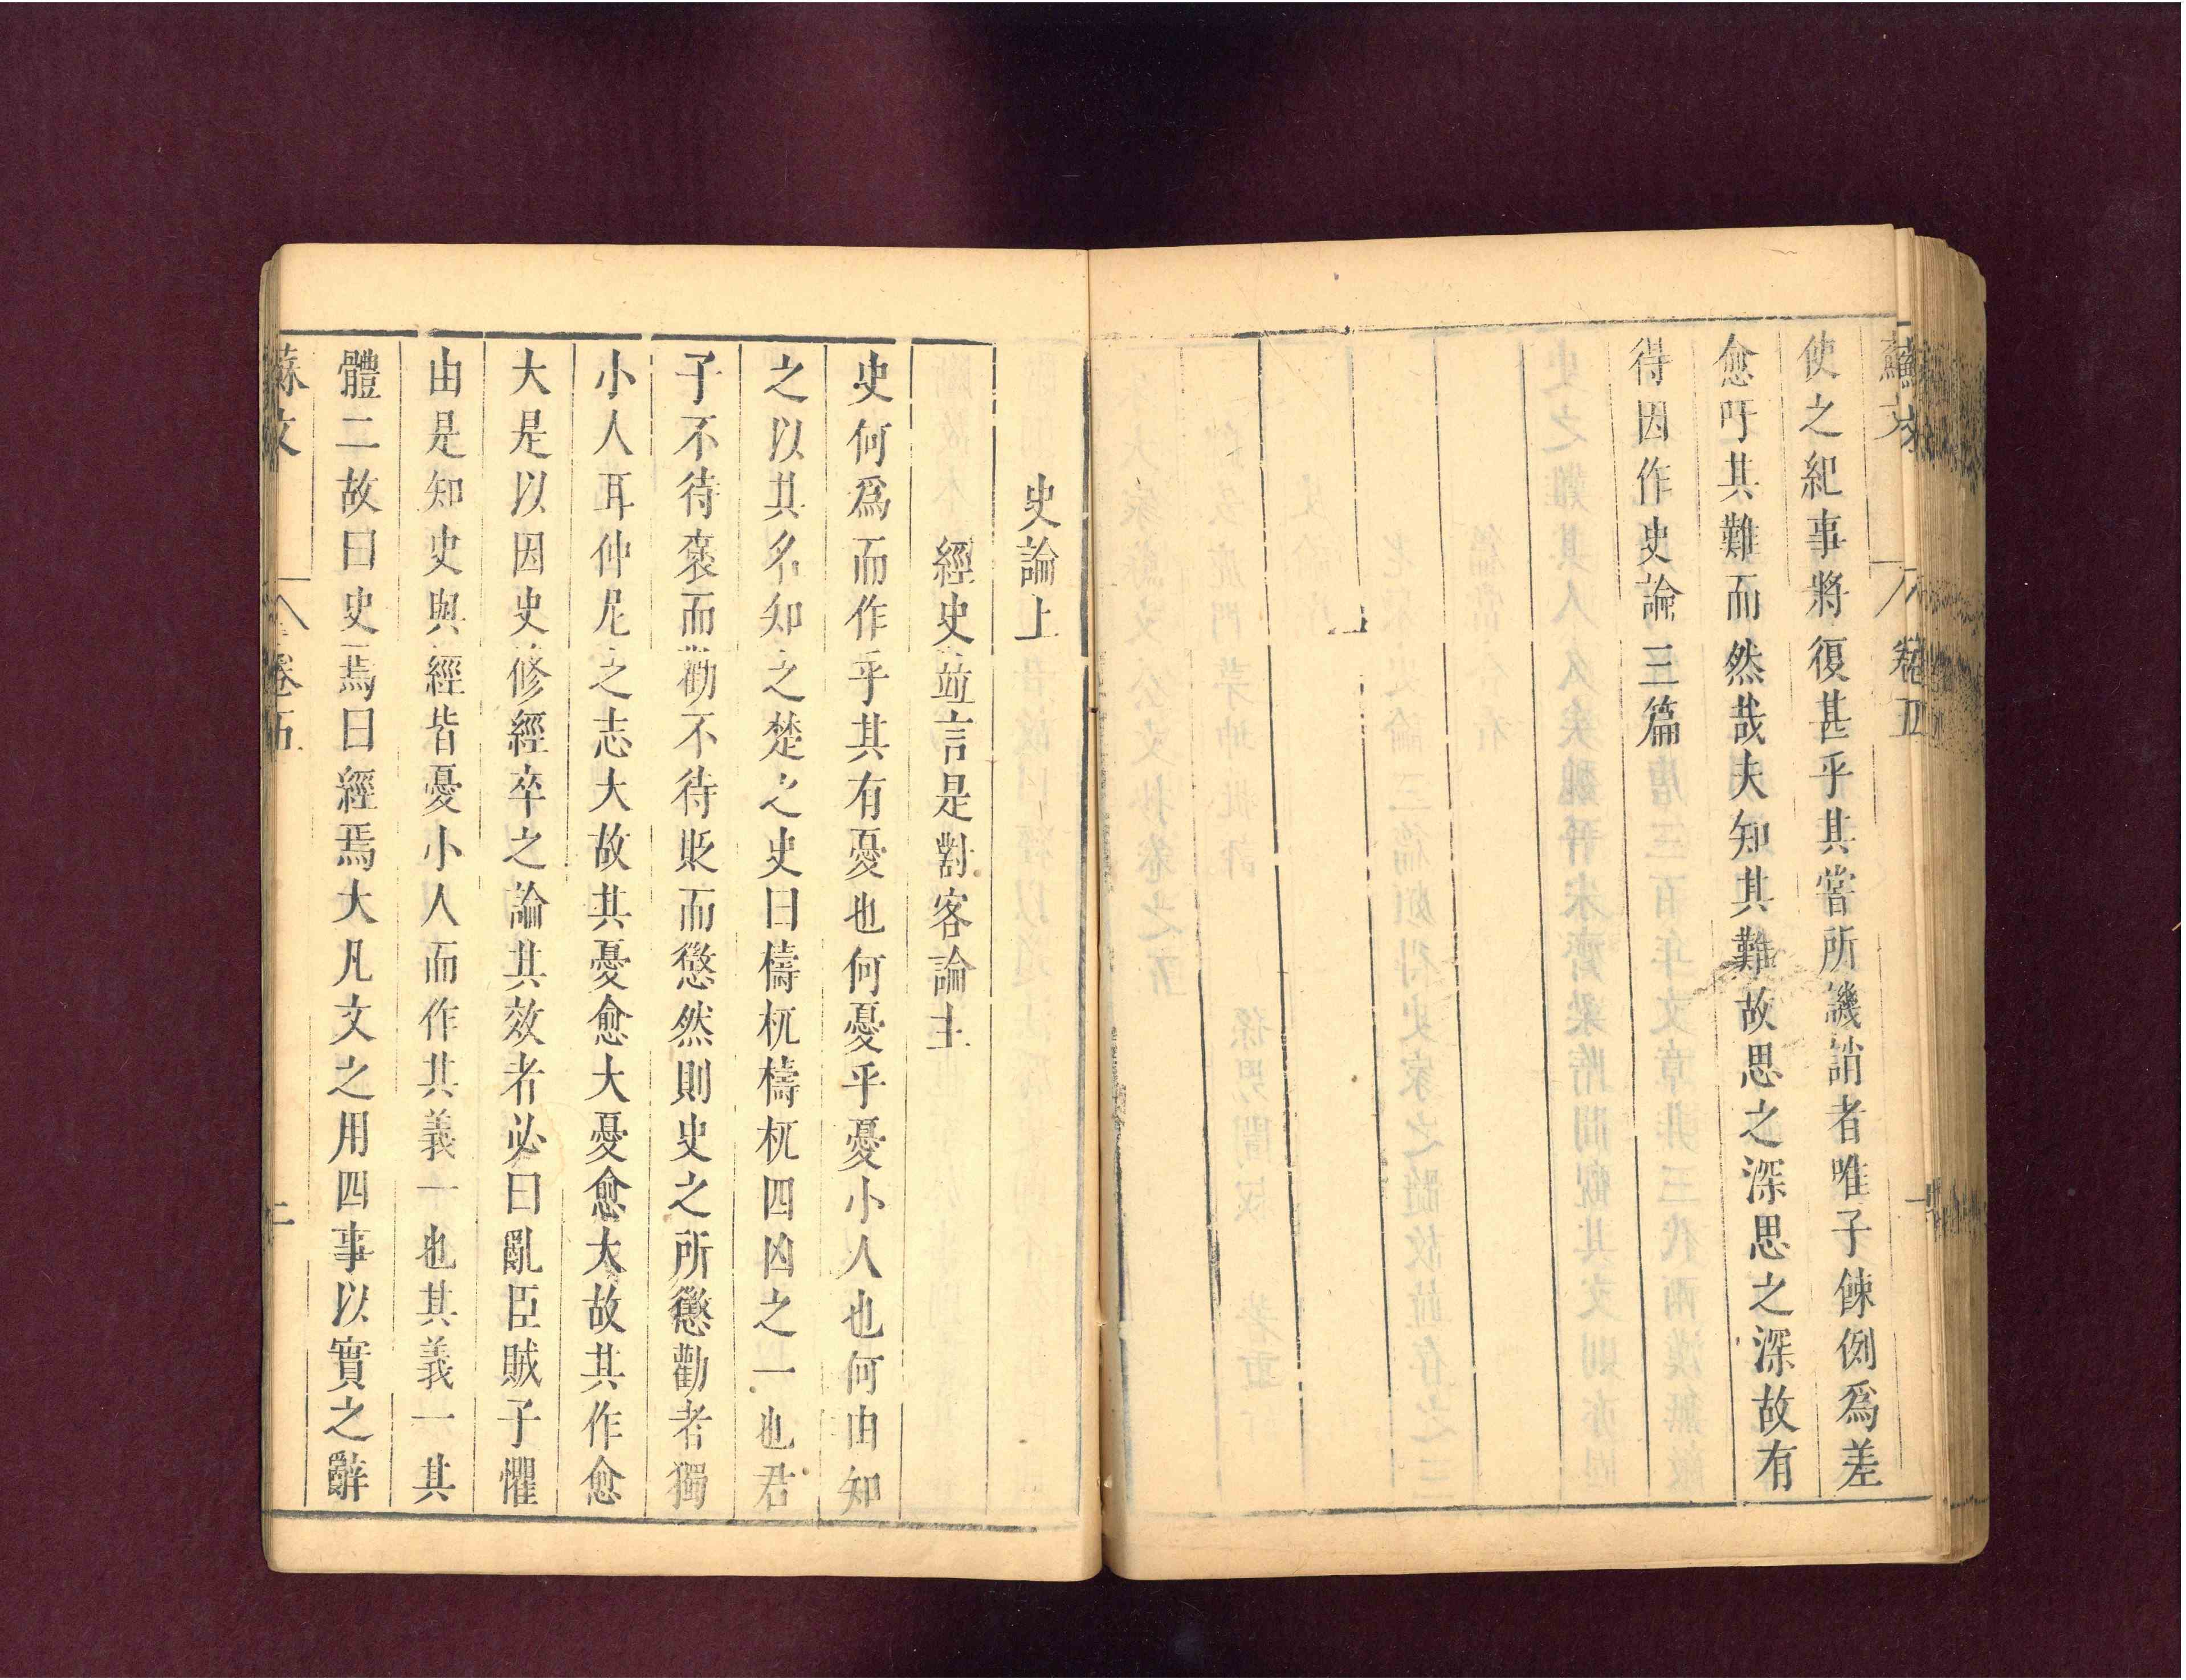 蘇文
卷五
一
使之紀事將復甚乎其嘗所譏誚者唯子餗例爲差
愈吁其難而然哉夫知其難故思之深思之深故有
得因作史論三篇
史論上
經史並言是對客論主
史何爲而作乎其有憂也何憂乎憂小人也何由知
之以其名知之楚之史曰檮杌檮杌四凶之一也君
子不待褒而勸不待貶而懲然則史之所懲勸者獨
小人耳仲尼之志大故其憂愈大憂愈大故其作愈
大是以因史修經卒之論其效者必曰亂臣賊子懼
由是知史與經皆憂小人而作其義一也其義一其
體二故曰史焉曰經焉大凡文之用四事以實之辭
蘇文
卷五
二